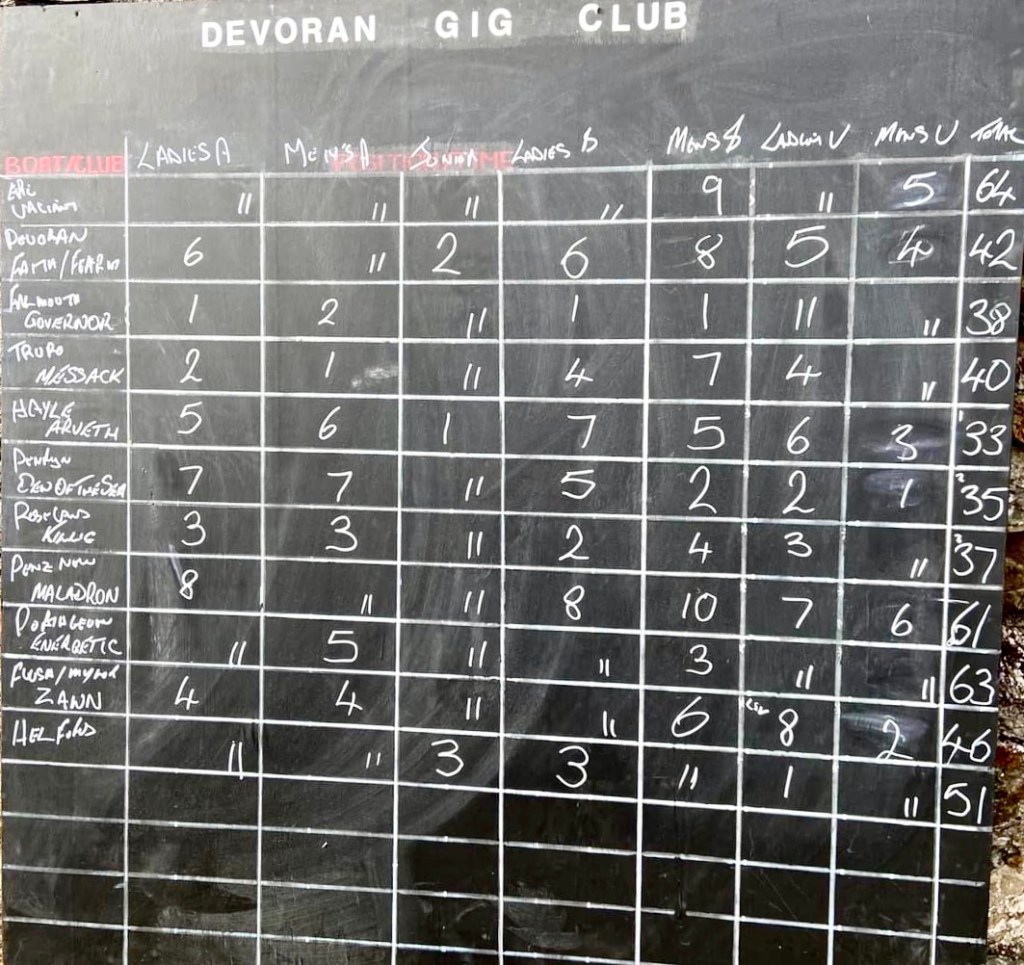 DEVORAN GIG CLUB
BOAT/CLUB LADIES A MEN'S A LADIES B MENS B LADIES V MENS V TOTAL
11 11 11 11 9 11 5 64
DEVORAN
6 11 2 6 8 5 4 42
FALMOUTH
GOVERNOR 1 2 11 1 1 11 11 38
TRURO
MESSACK 2 1 11 4 7 4 11 40
HAYLE
ARVETH 5 6 1 7 5 6 3 1 33
PENRYN
DEN OF THE SEA 7 7 11 5 2 2 1 2 35
ROSELAND
3 3 11 2 4 3 11 3 37
MALADRON 8 11 11 8 10 7 6 61
ENERGETIC 11 5 11 11 3 11 11 63
FLUSH/MYLOR
ZAWN 4 4 11 11 6 8 2 46
HELFORD 11 11 3 3 11 1 11 51